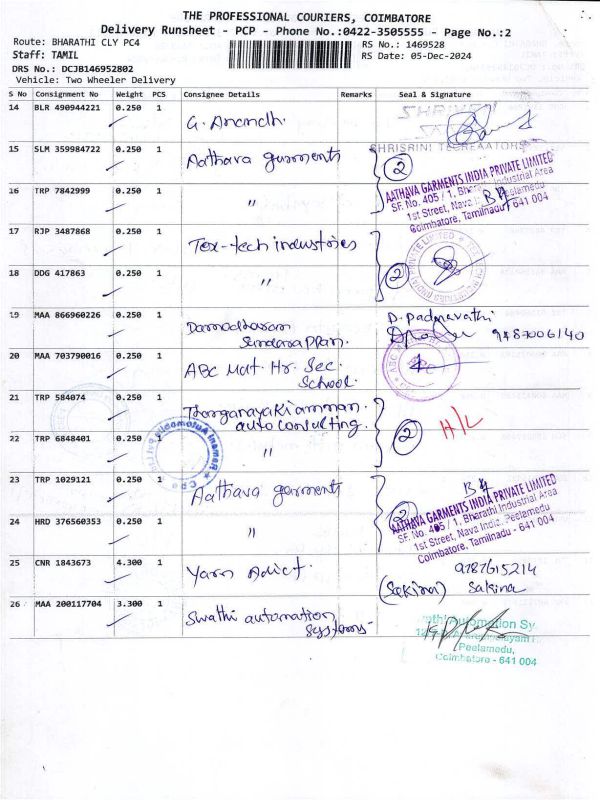 THE PROFESSIONAL COURIERS, COIMBATORE
Delivery Runsheet - PCP - Phone No.:0422-3505555 - Page No.:2
Route: BHARATHI CLY PC4
RS No.: 1469528
Staff: TAMIL
RS Date: 05-Dec-2024
DRS No.: DCJB146952802
Vehicle: Two Wheeler Delivery
S No Consignment No Weight PCS Consignee Details Remarks Seal & Signature
14 BLR 490944221 0.250 1
G. Anandhi.
SHRISRINI
15 SLM 359984722 0.250 1
Aathava garments
2
AATHAVA GARMENTS INDIA PRIVATE LIMITED
SF. No. 405 / 1, Bharathi Industrial Area
1st Street, Nava India, Peelamedu
Coimbatore, Tamilnadu - 641 004
16 TRP 7842999 0.250 1
"
17 RJP 3487868 0.250 1
Tex-tech industries
2
18 DDG 417863 0.250 1
"
19 MAA 866960226 0.250 1
Damodharam
Sundarappan.
D. Padmavathi
9487006140
20 MAA 703790016 0.250 1
ABC Mat. Hr. Sec.
School.
21 TRP 584074 0.250 1
Thanganayakiamman.
auto consulting.
2
H/L
22 TRP 6848401 0.250 1
"
23 TRP 1029121 0.250 1
Aathava garments
2
AATHAVA GARMENTS INDIA PRIVATE LIMITED
SF. No. 405 / 1, Bharathi Industrial Area
1st Street, Nava India, Peelamedu
Coimbatore, Tamilnadu - 641 004
24 HRD 376560353 0.250 1
"
25 CNR 1843673 4.300 1
Yarn Adict.
9787615214
(Sakina) Sakina
26 MAA 200117704 3.300 1
Swathi automation
systems-
Automation Sy
Peelamedu,
Coimbatore - 641 004